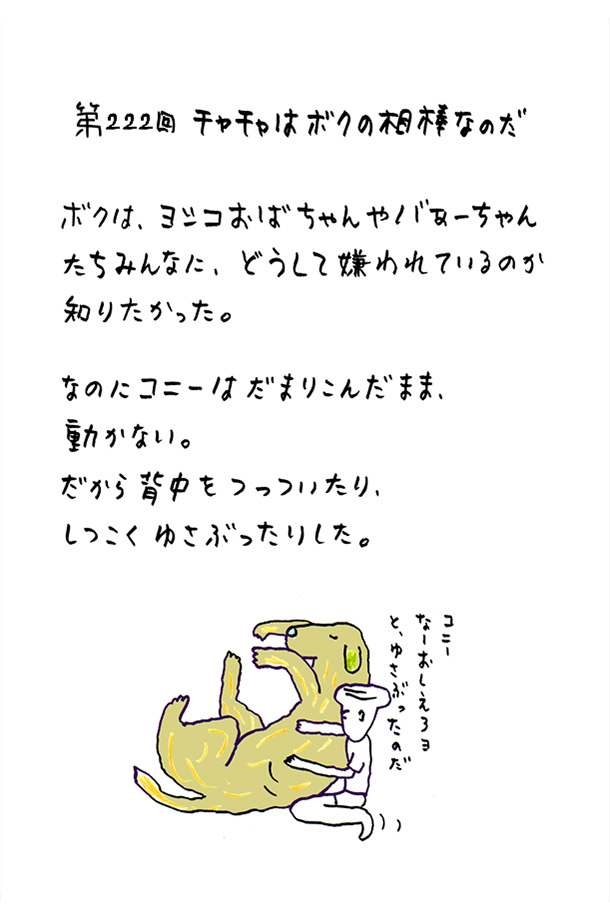 第222回 チャチャはボクの相棒なのだ
ボクは、ヨシコおばちゃんやバぁーちゃん
たちみんなに、どうして嫌われているのか
知りたかった。
なのにコニーはだまりこんだまま、
動かない。
だから背中をつっついたり、
しつこくゆさぶったりした。
コニー
なーおしえろヨ
と、ゆさぶったのだ